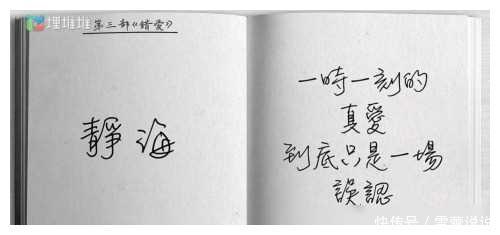 埋堆堆
第三部《錯愛》
靜海
一時一刻的
真愛
到底只是一場
誤認
快传号／雪薇说说